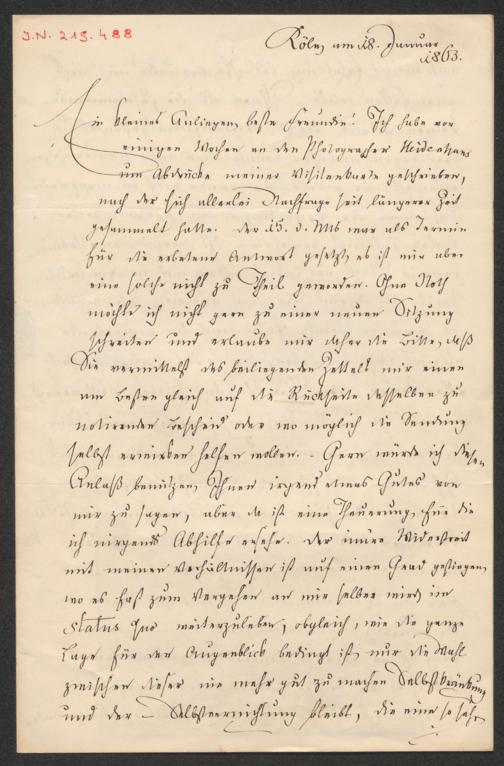 J.N. 213.488
Köln, am 18. Januar
1863.
Ein kleines Anliegen, beste Freundin! Ich habe vor
einigen Wochen an den Photographen
um Abdrücke meiner Visitenkarte geschrieben,
nach der sich allerlei Nachfrage seit längerer Zeit
gesammelt hatte. Der 15. d. Mts war als Termin
für die erbetene Antwort gesetzt, es ist mir aber
eine solche nicht zu Theil geworden. Ohne Noth
möchte ich nicht gern zu einer neuen Sitzung
schreiten und erlaube mir daher die Bitte, daß
Sie vermittelst des beiliegenden Zettels mir einen
am Besten gleich auf die Rückseite desselben zu
notirenden Bescheid oder wo möglich die Sendung
selbst erwirken helfen wollen. – Gern würde ich diesen
Anlaß benützen, Ihnen irgend etwas Gutes von
mir zu sagen, aber da ist eine Theuerung, für die
ich nirgends Abhilfe ersehe. Der innre Widerstreit
mit meinen Verhältnissen ist auf einen Grad gestiegen,
wo es fast zum Vergehen an mir selber wird, im
status quo weiterzuleben, obgleich, wie die ganze
Lage für den Augenblick bedingt ist, nur die Wahl
zwischen dieser nie mehr gut zu machen Selbstkränkung
und der – Selbstvernichtung bleibt, die eine so sehr